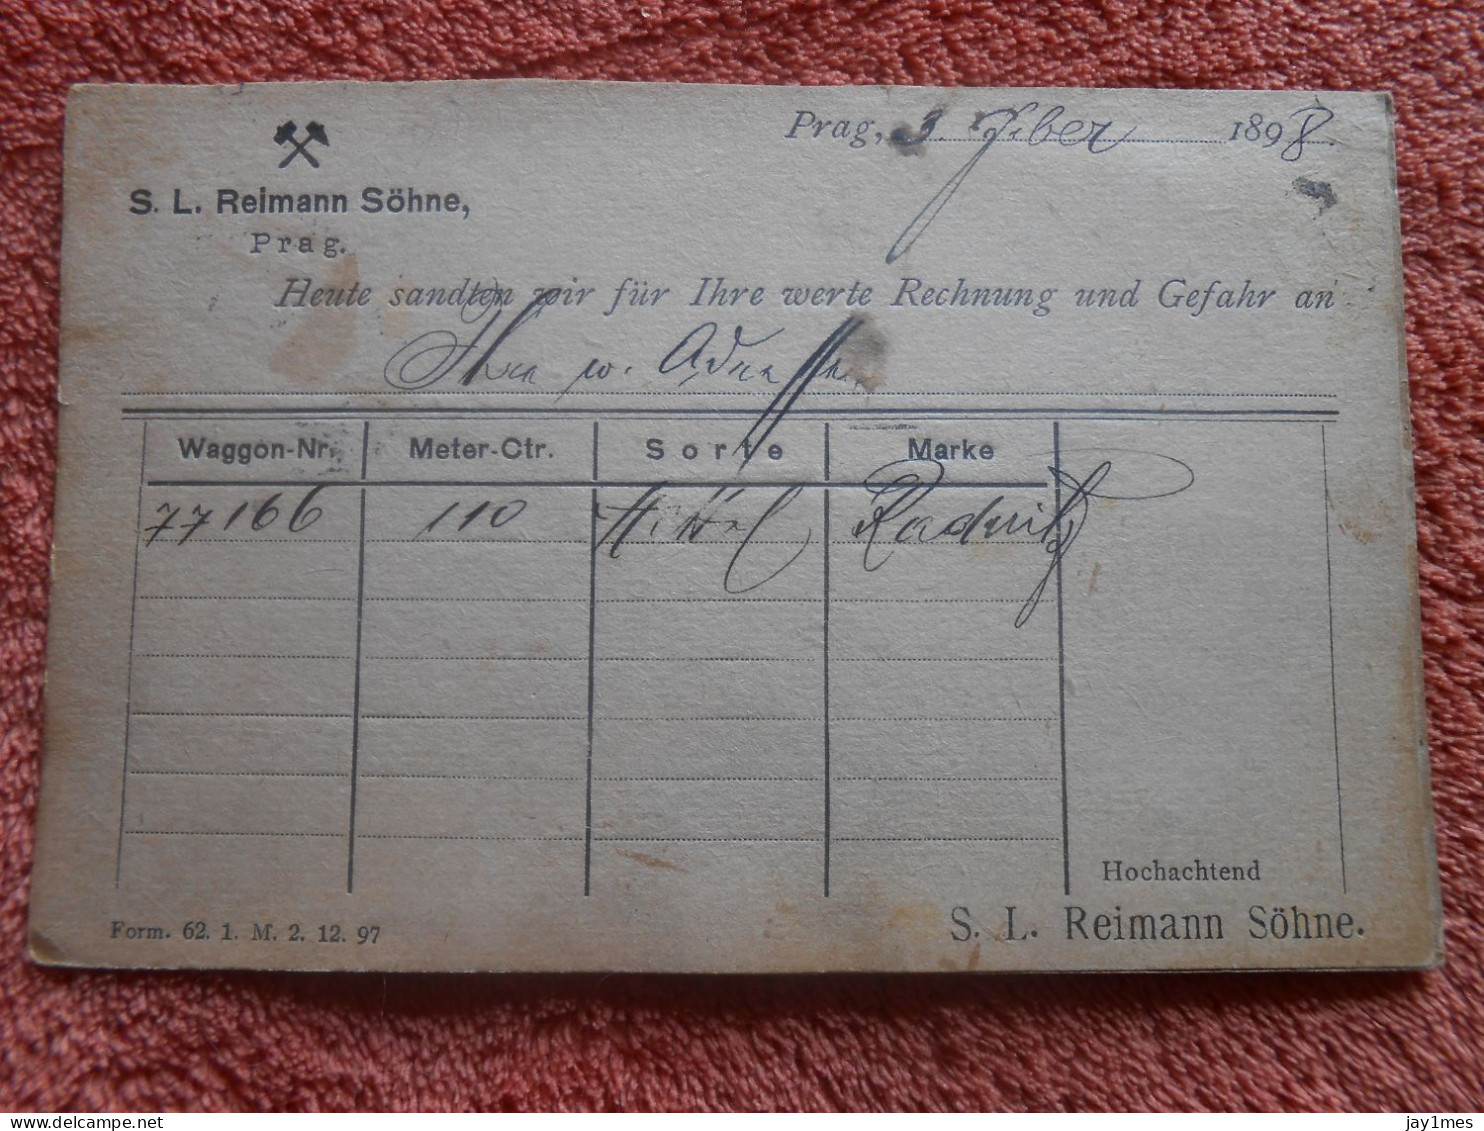 Prag, 3. 7ber 1898.
S. L. Reimann Söhne,
Prag.
Heute sandten wir für Ihre werte Rechnung und Gefahr an
Ihre w. Adresse
Waggon-Nr. Meter-Ctr. Sorte Marke
77166 110 Mittel Radnitz
Hochachtend
S. L. Reimann Söhne.
Form. 62. 1. M. 2. 12. 97
jay1mes